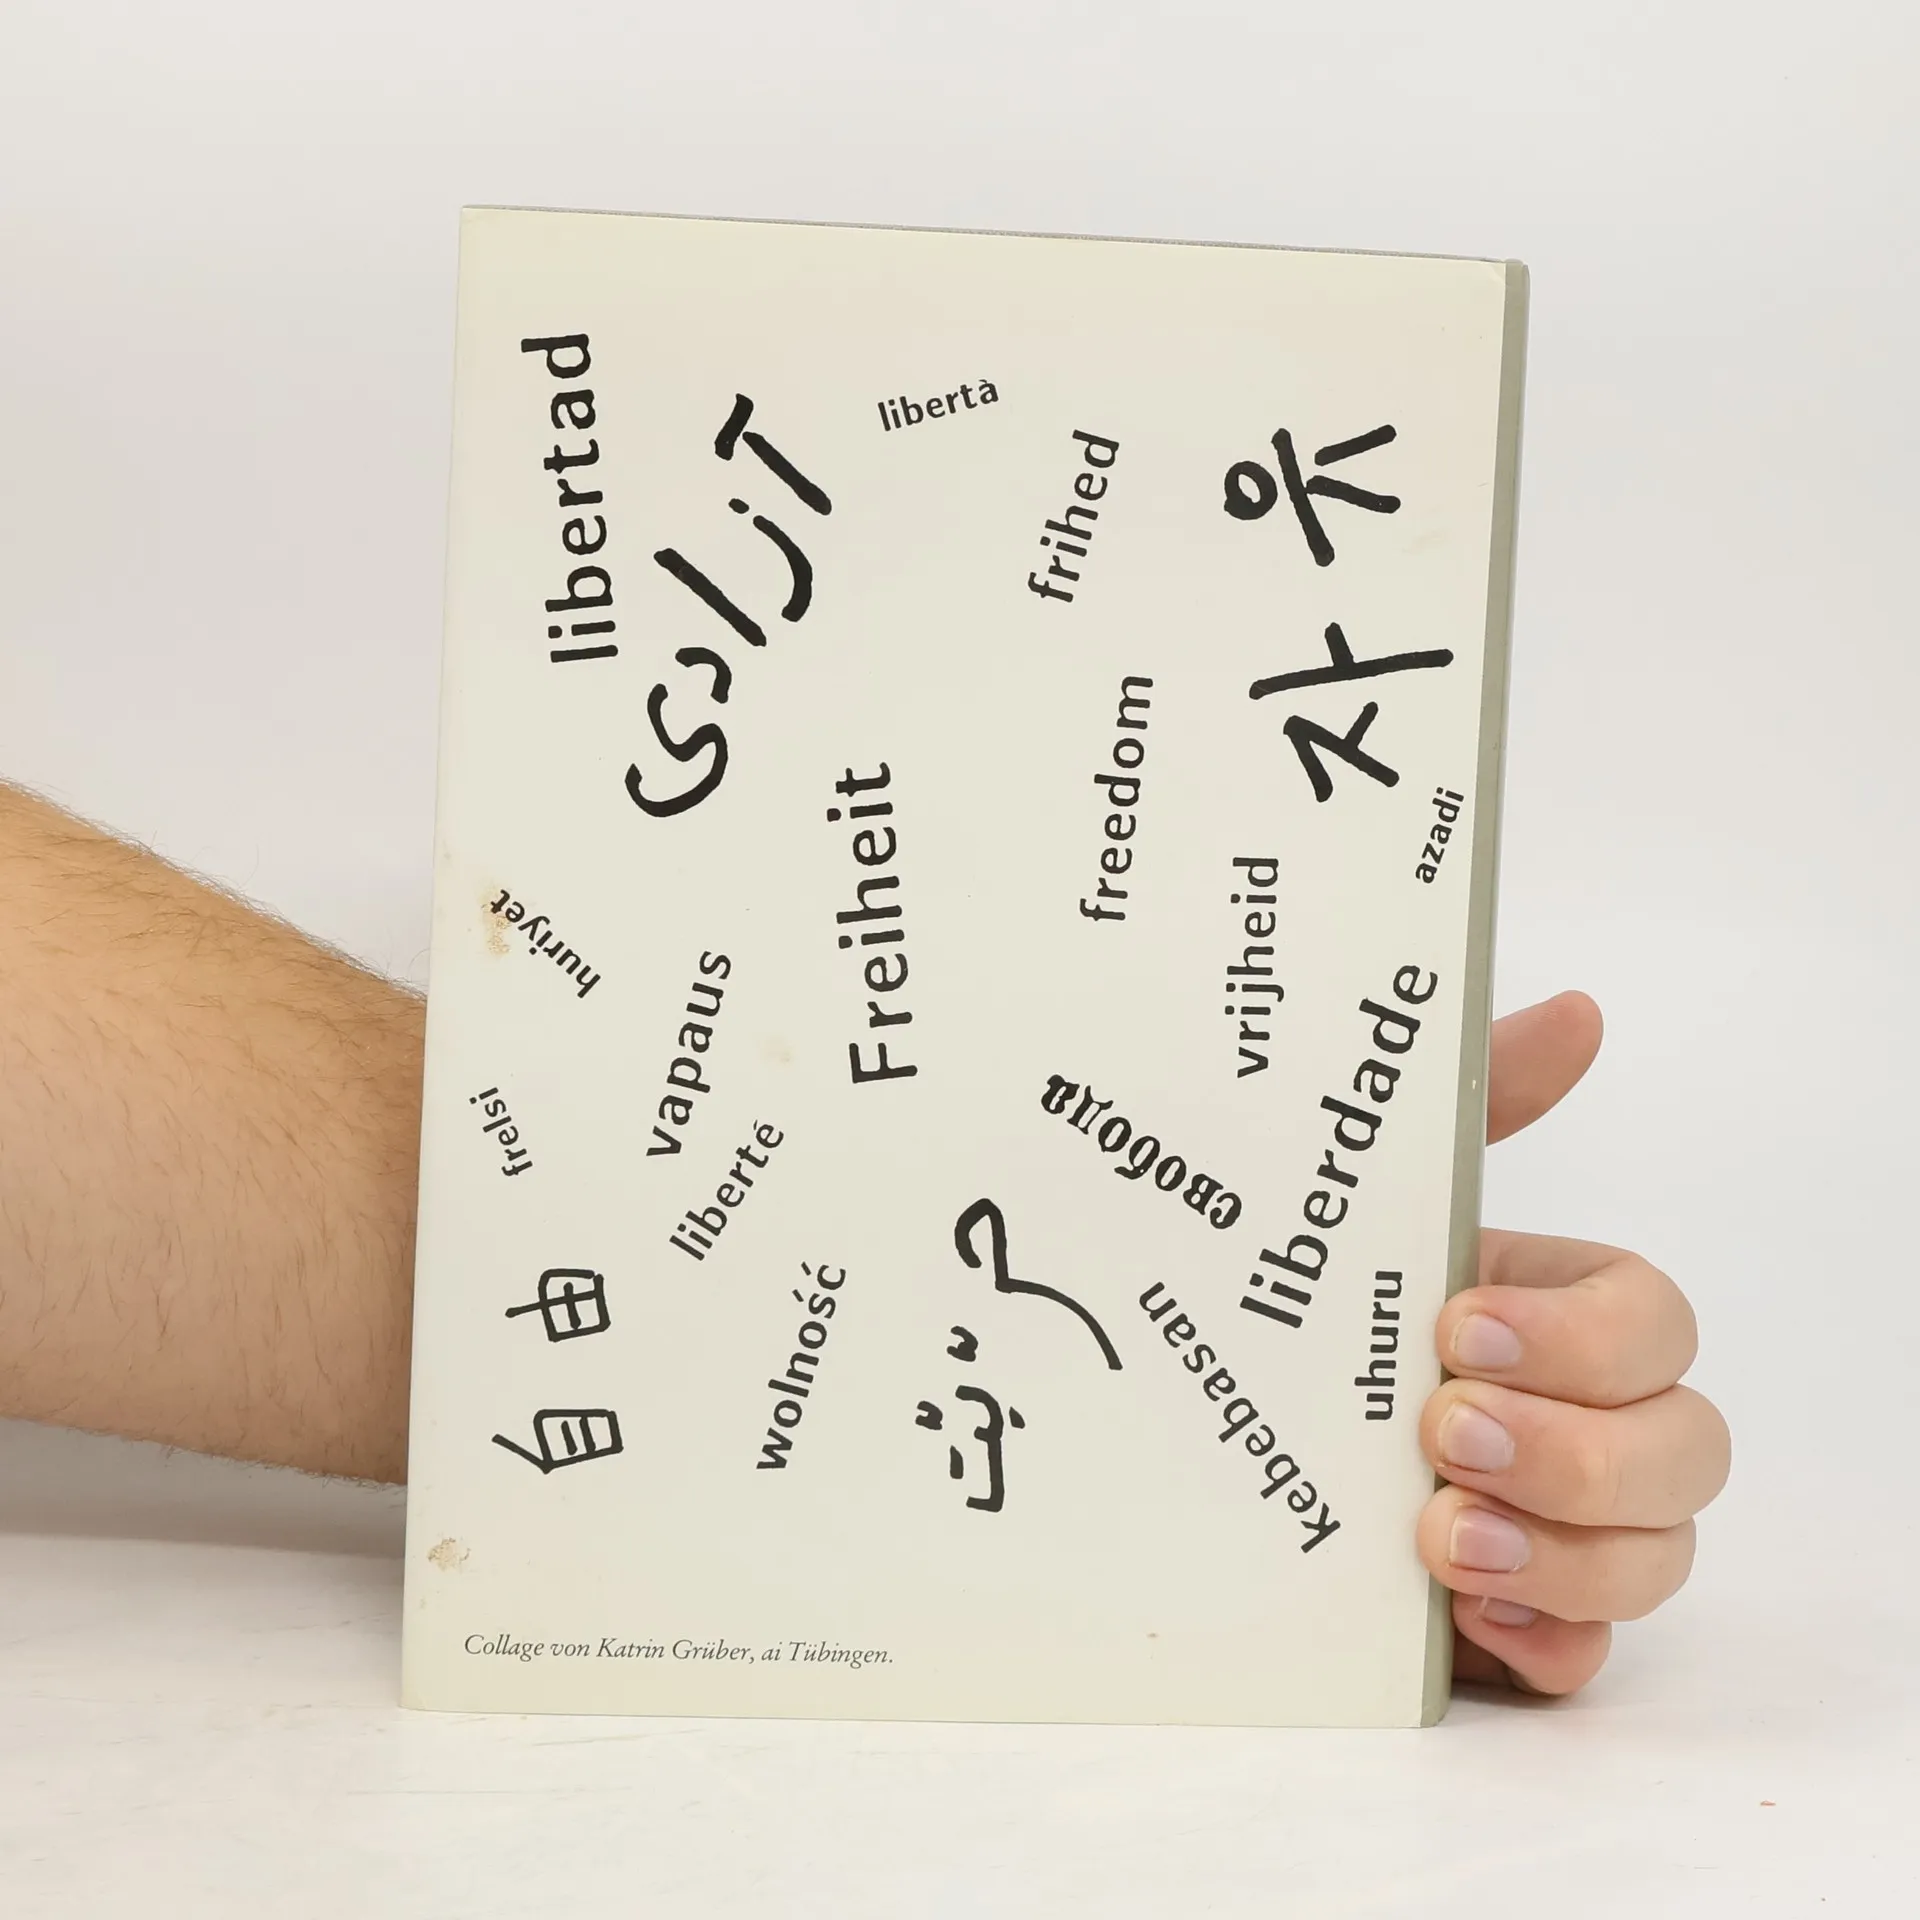 libertad
آزادی
libertà
frihed
자유
freedom
Freiheit
azadi
vrijheid
huriyet
vapaus
liberdade
frelsi
liberté
свобода
自由
wolność
kebebasan
uhuru
Collage von Katrin Grüber, ai Tübingen.